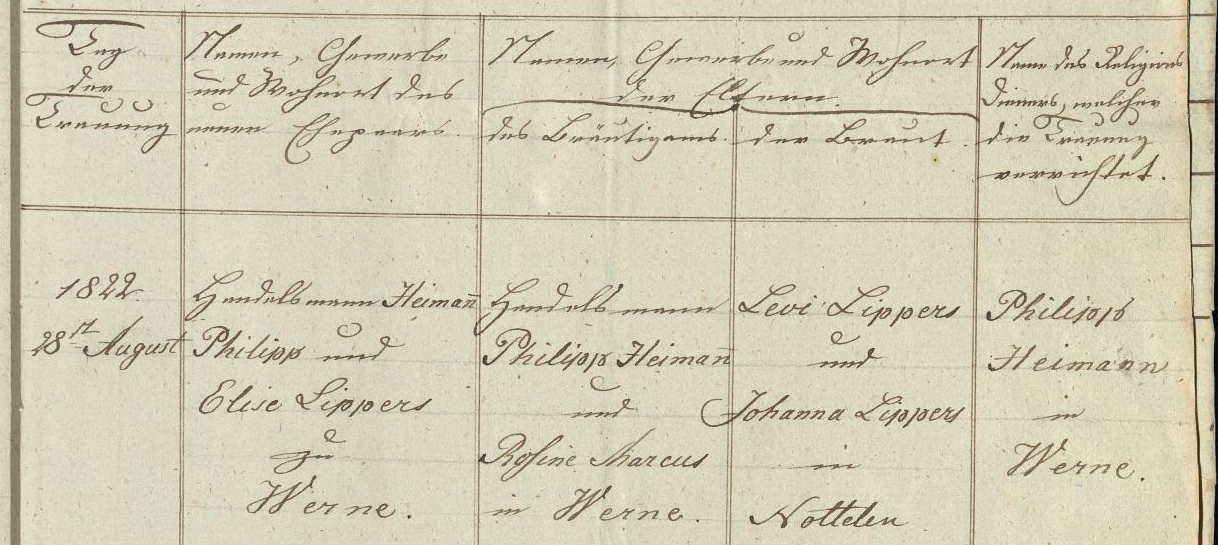 Tag
der
Trauung
Namen, Gewerbe
und Wohnort des
neuen Ehepaars.
Namen, Gewerbe und Wohnort
der Eltern.
des Bräutigams.
der Braut.
Name des Religions
Dieners, welcher
die Trauung
verrichtet.
1822.
28st August
Handelsmann Heimañ
Philipp und
Elise Lippers
zu
Werne.
Handelsmann
Philipp Heimañ
und
Rosine Marcus
in Werne.
Levi Lippers
und
Johanna Lippers
in
Nottelen
Philipp
Heimann
in
Werne.